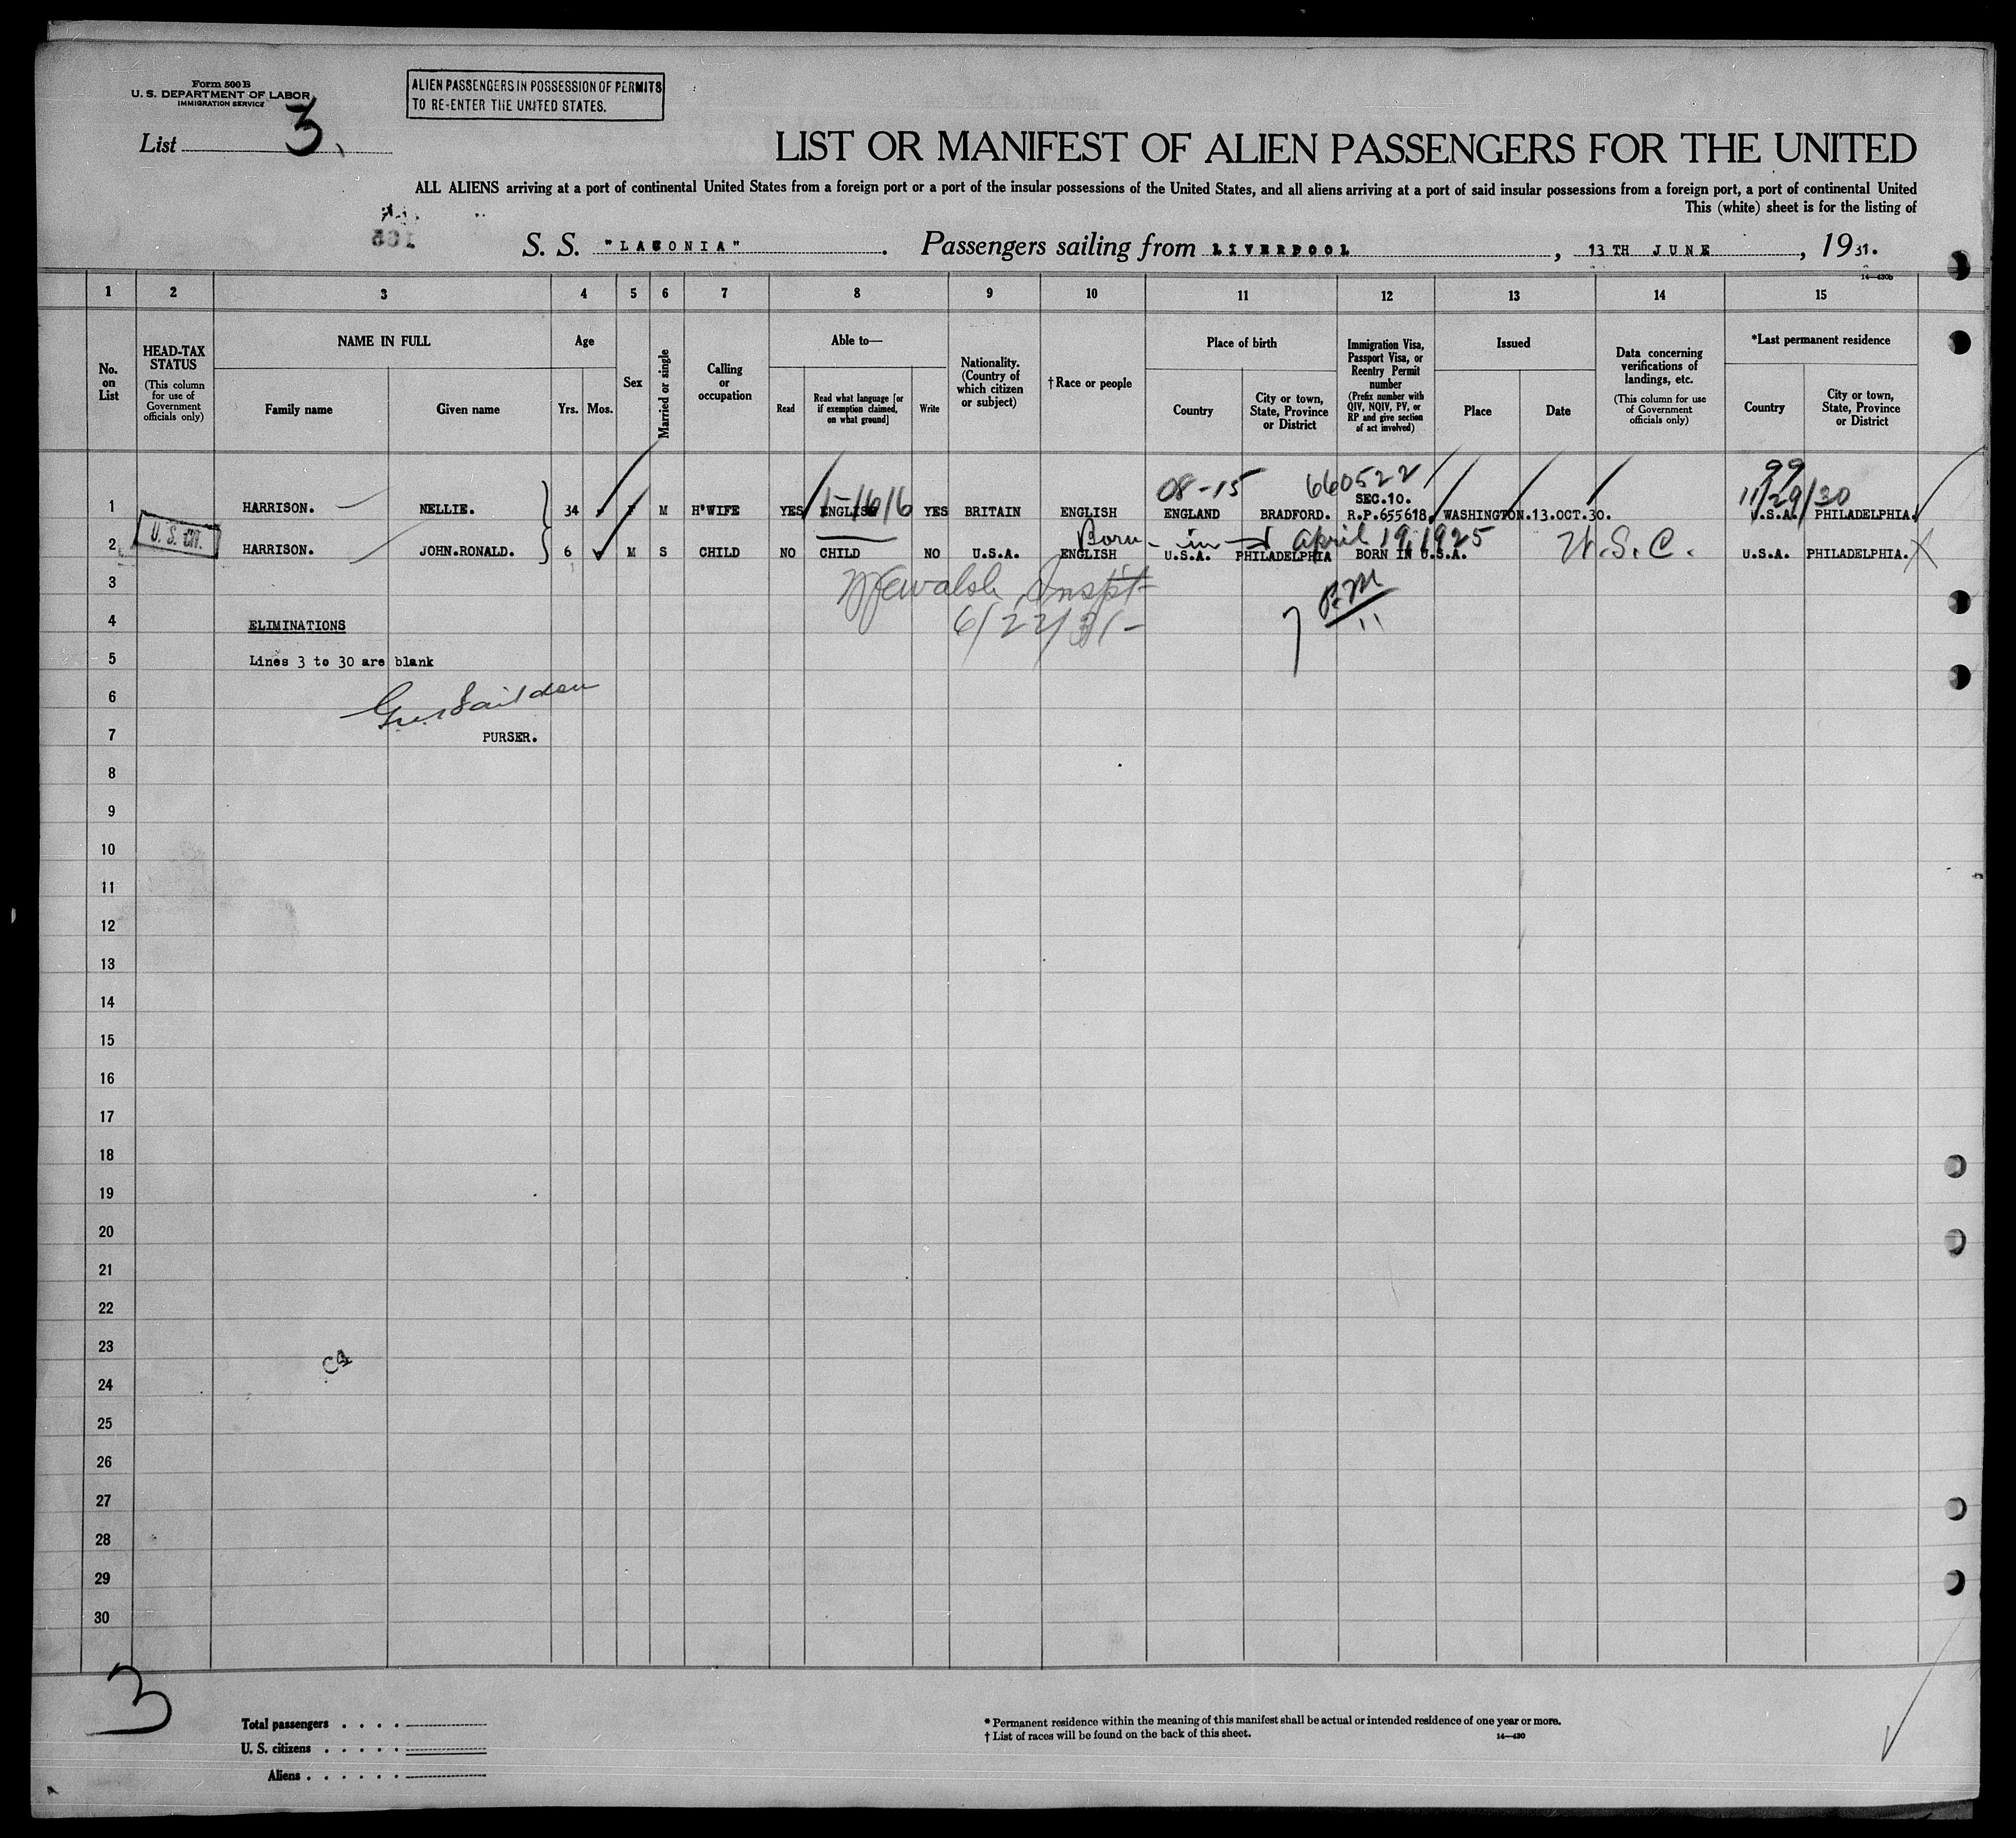 Form 500 B
U. S. DEPARTMENT OF LABOR
IMMIGRATION SERVICE
ALIEN PASSENGERS IN POSSESSION OF PERMITS
TO RE-ENTER THE UNITED STATES.
List 3.
LIST OR MANIFEST OF ALIEN PASSENGERS FOR THE UNITED
ALL ALIENS arriving at a port of continental United States from a foreign port or a port of the insular possessions of the United States, and all aliens arriving at a port of said insular possessions from a foreign port, a port of continental United
This (white) sheet is for the listing of
165
S. S. "LACONIA". Passengers sailing from LIVERPOOL, 13TH JUNE, 1931.
14—430b
1 2 3 4 5 6 7 8 9 10 11 12 13 14 15
No. on List
HEAD-TAX STATUS
(This column for use of Government officials only)
NAME IN FULL
Family name
Given name
Age
Yrs. Mos.
Sex
Married or single
Calling or occupation
Able to—
Read
Read what language [or if exemption claimed, on what ground]
Write
Nationality. (Country of which citizen or subject)
† Race or people
Place of birth
Country
City or town, State, Province or District
Immigration Visa, Passport Visa, or Reentry Permit number
(Prefix number with QIV, NQIV, PV, or RP and give section of act involved)
Issued
Place
Date
Data concerning verifications of landings, etc.
(This column for use of Government officials only)
*Last permanent residence
Country
City or town, State, Province or District
08-15 660522 99
1-1616 SEC.10. 11/29/30
1 HARRISON. NELLIE. 34 F M H'WIFE YES ENGLISH YES BRITAIN ENGLISH ENGLAND BRADFORD. R.P.655618. WASHINGTON.13.OCT.30. U.S.A. PHILADELPHIA.
U. S. CIT.
Born in April 19, 1925
2 HARRISON. JOHN.RONALD. 6 M S CHILD NO CHILD NO U.S.A. ENGLISH U.S.A. PHILADELPHIA BORN IN U.S.A. U.S.C. U.S.A. PHILADELPHIA. X
3
Walsh Inspt
6/22/31-
P.M.
7 11
4 ELIMINATIONS
5 Lines 3 to 30 are blank
6
7 PURSER.
8
9
10
11
12
13
14
15
16
17
18
19
20
21
22
23
C4
24
25
26
27
28
29
30
3
Total passengers . . . .
U. S. citizens . . . . .
Aliens . . . . . .
* Permanent residence within the meaning of this manifest shall be actual or intended residence of one year or more.
† List of races will be found on the back of this sheet.
14—430